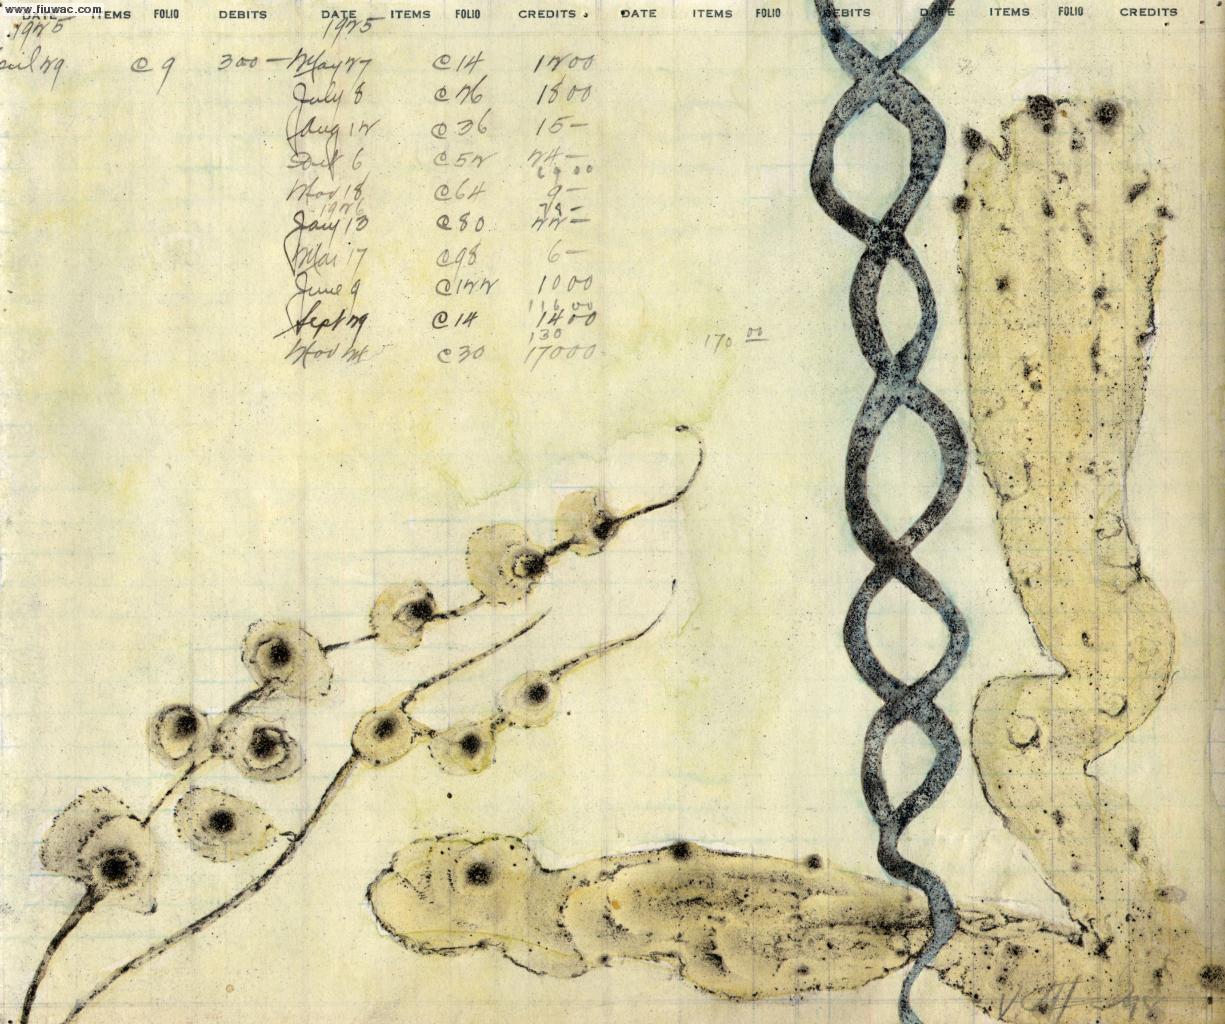 www.fiuwac.com
DATE ITEMS FOLIO DEBITS DATE ITEMS FOLIO CREDITS DATE ITEMS FOLIO DEBITS DATE ITEMS FOLIO CREDITS
1925 1925
29 @9 300— May 27 @14 1200
July 8 @26 1800
Aug 12 @36 15—
Sept 6 @52 24—
69 00
Nov 18 @64 9—
1926 78—
Jany 13 @80 22—
Mar 17 @98 6—
June 9 @122 1000
116 00
Sept 29 @14 1400
130
Nov @30 17000 170 00